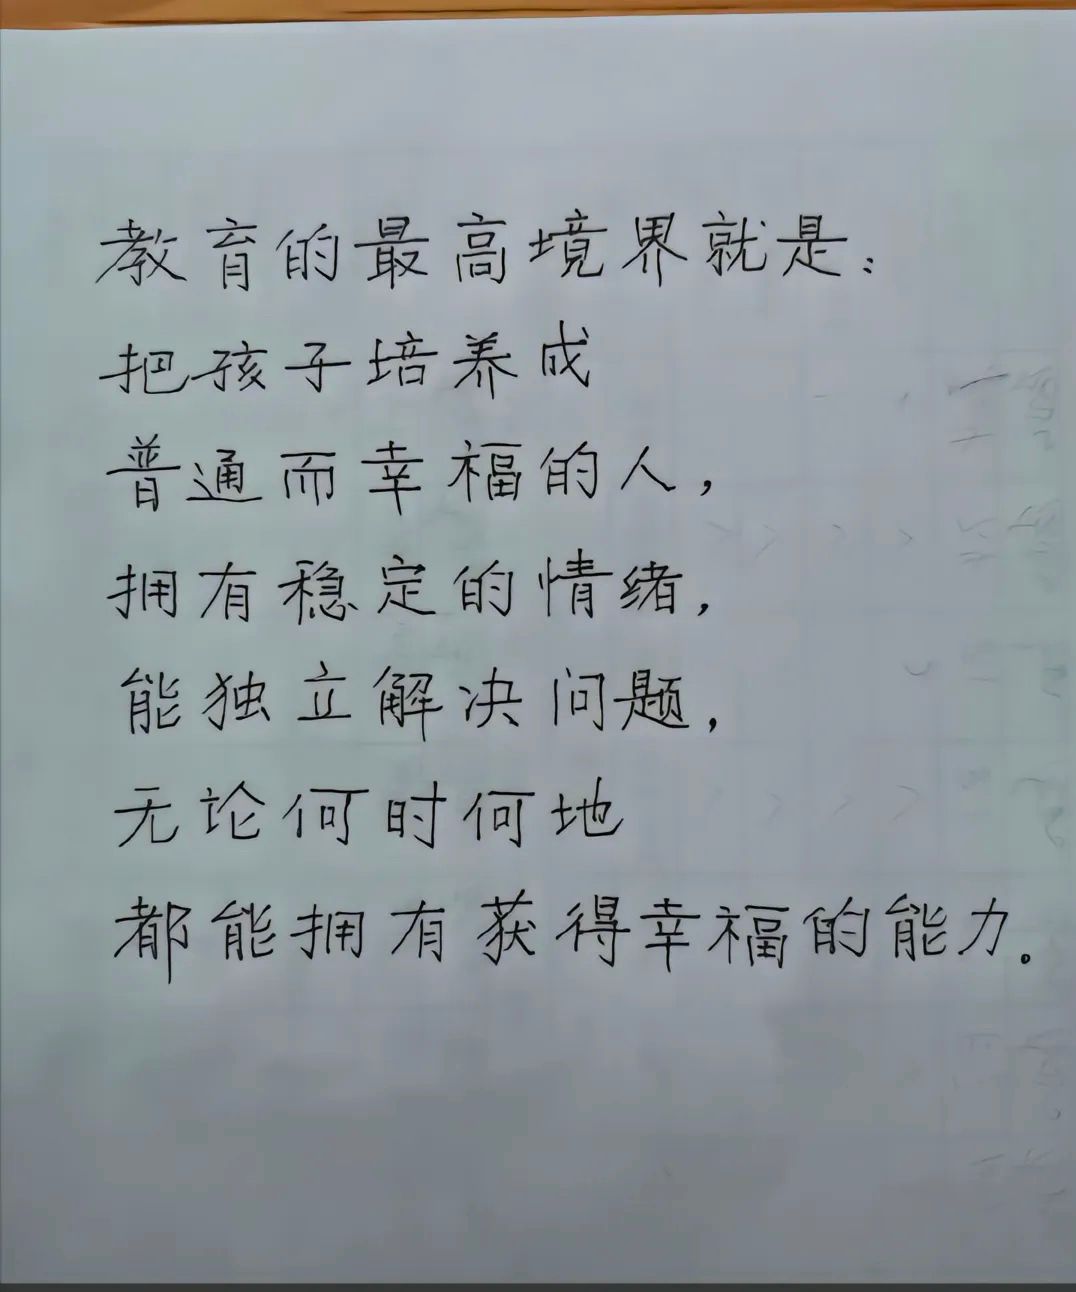 教育的最高境界就是：
把孩子培养成
普通而幸福的人，
拥有稳定的情绪，
能独立解决问题，
无论何时何地
都能拥有获得幸福的能力。